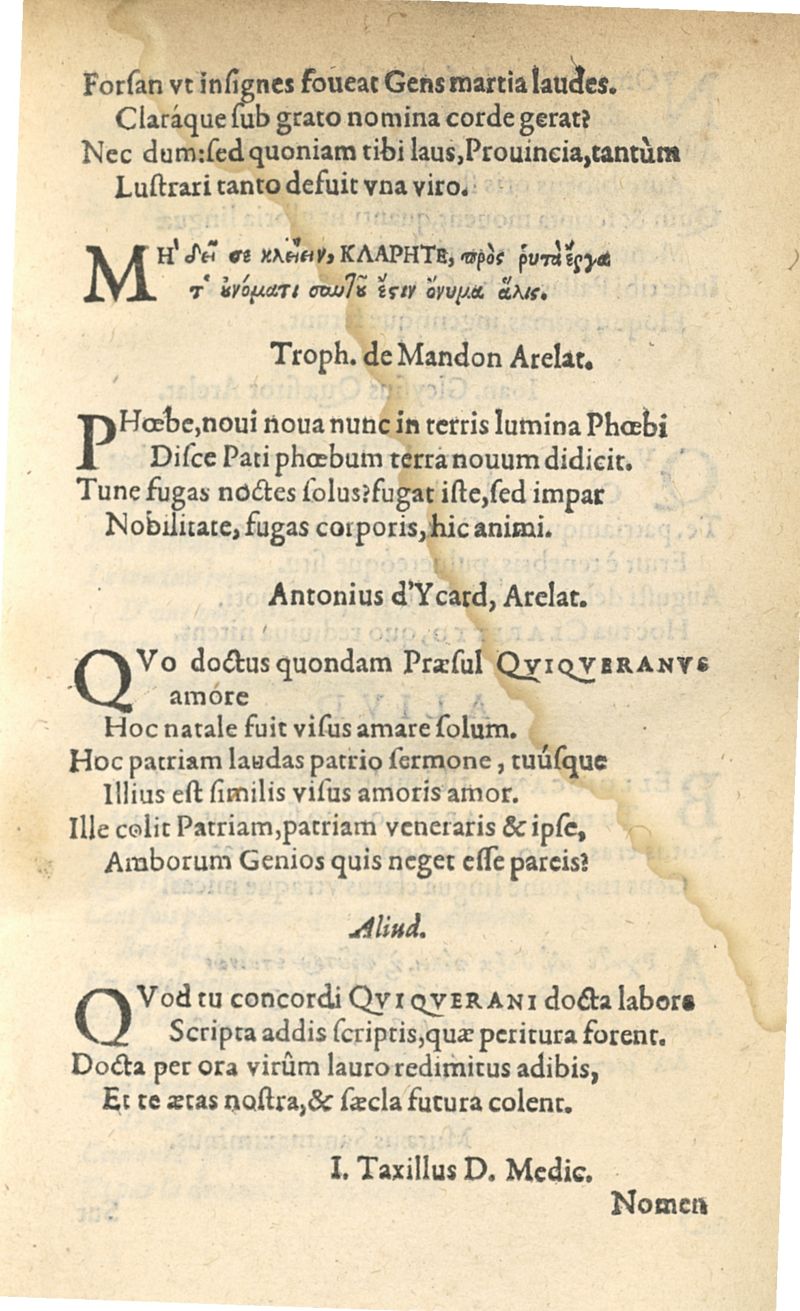 Forſan vt inſignes foueat Gens martia laudes.
Claráque ſub grato nomina corde gerat?
Nec dum:ſed quoniam tibi laus,Prouincia,tantùm
Luſtrari tanto defuit vna viro.
ΜΗ' δεῖ σε κλείειν, ΚΛΑΡΗΤΕ, πρὸς ῥυτὰ ἔργα
τ' οὐνόματι σαυτοῦ ἔςιν ὄνυμα ἅλις.
Troph. de Mandon Arelat.
PHœbe,noui noua nunc in terris lumina Phœbi
Diſce Pati phœbum terra nouum didicit.
Tune fugas noctes ſolus?fugat iſte,ſed impar
Nobilitate, fugas corporis, hic animi.
Antonius d'Ycard, Arelat.
QVo doctus quondam Præſul QVIQVERANVS
amore
Hoc natale fuit viſus amare ſolum.
Hoc patriam laudas patrio ſermone, tuúſque
Illius eſt ſimilis viſus amoris amor.
Ille colit Patriam,patriam veneraris & ipſe,
Amborum Genios quis neget eſſe pareis?
Aliud.
QVod tu concordi QVIQVERANI docta labore
Scripta addis ſcriptis,quæ peritura forent.
Docta per ora virûm lauro redimitus adibis,
Et te ætas noſtra,& ſæcla futura colent.
I. Taxillus D. Medic.
Nomen